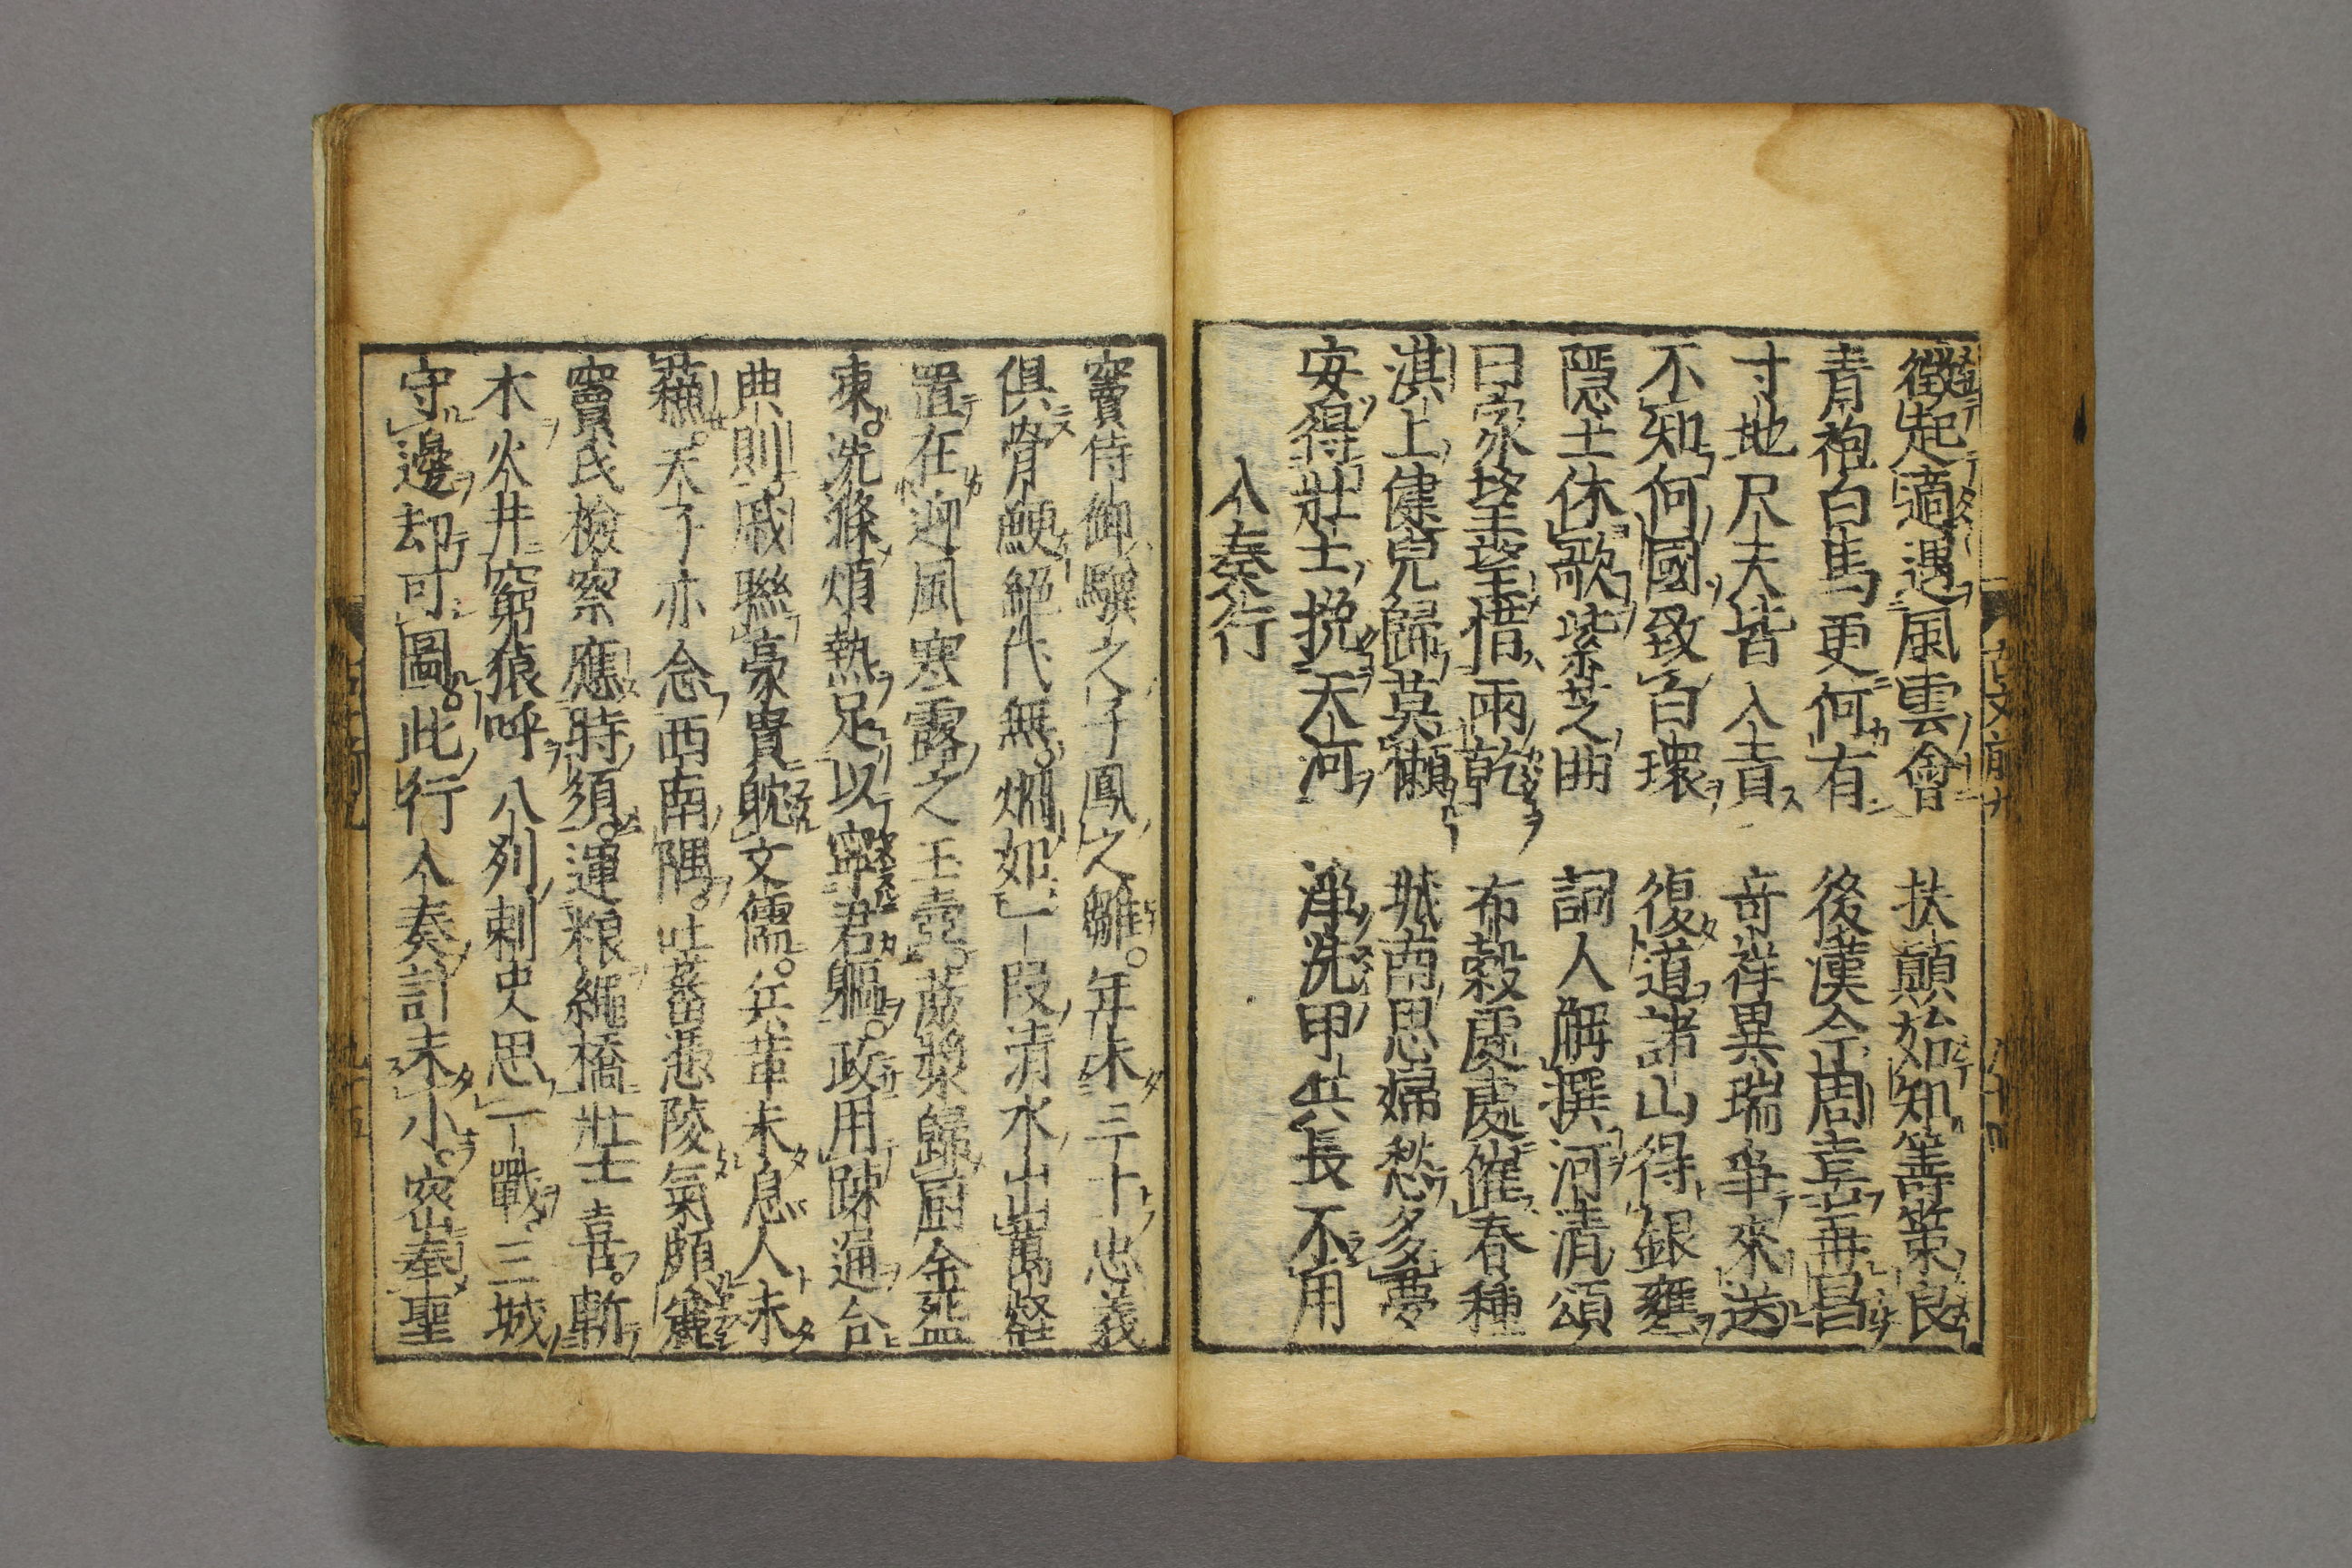 徵起適遇風雲會 扶顛始知籌策良
青袍白馬更何有 後漢今周喜再昌
寸地尺天皆入貢 奇祥異瑞爭來送
不知何國致白環 復道諸山得銀甕
隱士休歌紫芝曲 詞人解撰河清頌
田家望望惜雨乾 布穀處處催春種
淇上健兒歸莫懶 城南思婦愁多夢
安得壯士挽天河 淨洗甲兵長不用
入奏行
竇侍御驥之子鳳之雛。年未三十忠義
俱骨鯁絕代無。炯如一段清水出萬壑
置在迎風寒露之玉壺。蔗漿歸厨金盌
凍。洗滌煩熱足以寧君軀。政用踈通合
典則。戚聯豪貴耽文儒。兵革未息人未
蘇。天子亦念西南隅。吐蕃憑陵氣頗麄
竇氏檢察應時須。運粮繩橋壯士喜。斬
木火井窮猿呼。八列刺史思一戰。三城
守邊却可圖。此行入奏計未小。密奉聖